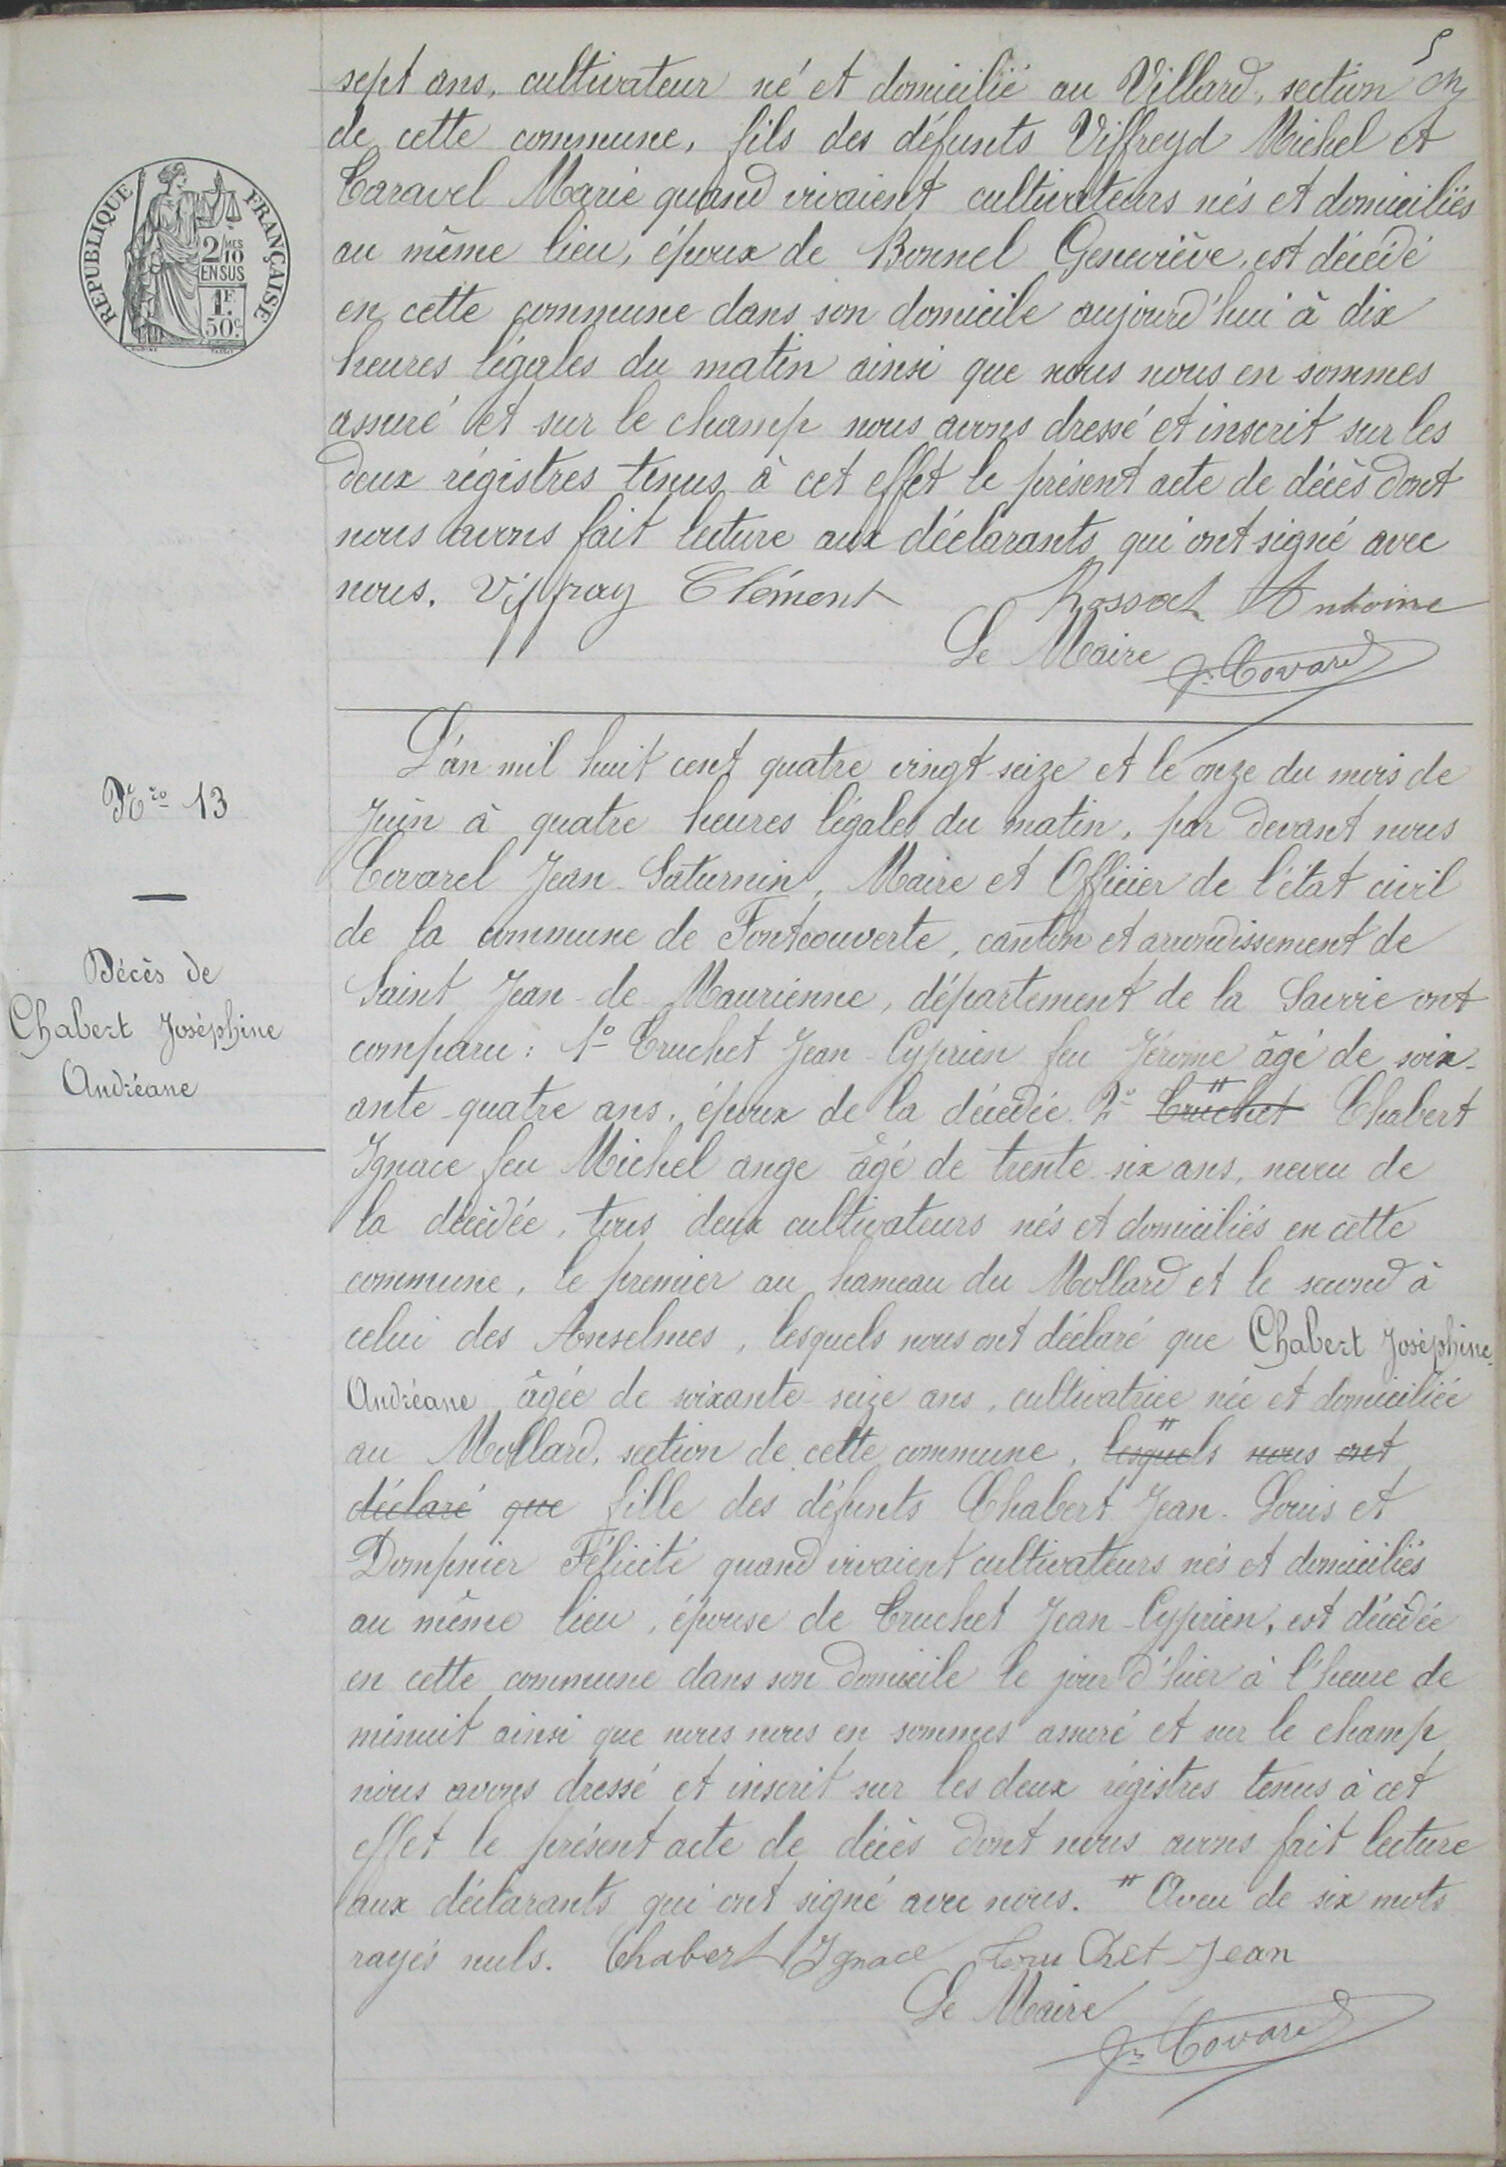 5
sept ans, cultivateur né et domicilié au Villard, section
de cette commune, fils des défunts Viffreyd Michel et
Caravel Marie quand vivaient cultivateurs nés et domiciliés
au même lieu, époux de Bonnel Geneviève, est décédé
en cette commune dans son domicile aujourd'hui à dix
heures légales du matin ainsi que nous nous en sommes
assuré et sur le champ nous avons dressé et inscrit sur les
deux régistres tenus à cet effet le présent acte de décès dont
nous avons fait lecture aux déclarants qui ont signé avec
nous. Viffray Clément Rossat Antoine
Le Maire Js Covarel
RÉPUBLIQUE FRANÇAISE
2/10 MES
EN SUS
1F.
50c
Nro 13
Décès de
Chabert Joséphine
Andréane
L'an mil huit cent quatre vingt-seize et le onze du mois de
Juin à quatre heures légales du matin, par devant nous
Covarel Jean-Saturnin, Maire et Officier de l'état civil
de la commune de Fontcouverte, canton et arrondissement de
Saint Jean-de-Maurienne, département de la Savoie ont
comparu: 1o Truchet Jean-Cyprien feu Jérome âgé de soix-
ante-quatre ans, époux de la décédée. 2o Truchet Chabert
Ignace feu Michel ange âgé de trente-six ans, neveu de
la décédée, tous deux cultivateurs nés et domiciliés en cette
commune, le premier au hameau du Mollard et le second à
celui des Anselmes, lesquels nous ont déclaré que Chabert Joséphine-
Andréane âgée de soixante-seize ans, cultivatrice née et domiciliée
au Mollard, section de cette commune, lesquels nous ont
déclaré que fille des défunts Chabert Jean-Louis et
Dompnier Félicité quand vivaient cultivateurs nés et domiciliés
au même lieu, épouse de Truchet Jean-Cyprien, est décédée
en cette commune dans son domicile le jour d'hier à l'heure de
minuit ainsi que nous nous en sommes assuré et sur le champ
nous avons dressé et inscrit sur les deux régistres tenus à cet
effet le présent acte de décès dont nous avons fait lecture
aux déclarants qui ont signé avec nous. # Aveu de six mots
rayés nuls. Chabert Ignace truChet Jean
Le Maire
Js Covarel